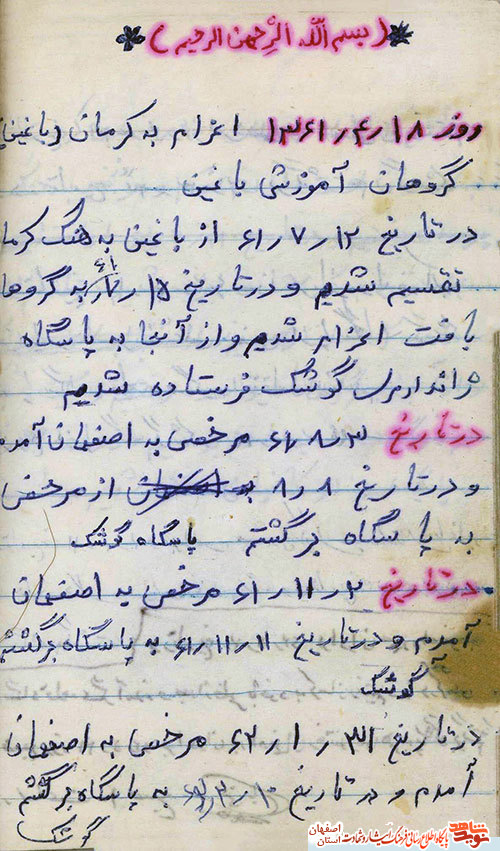 (بسم الله الرحمن الرحیم)
روز ۱۸ر۴ر۱۳۶۱ اعزام به کرمان (باغین)
گروهان آموزشی باغین
در تاریخ ۱۲ر۷ر۶۱ از باغین به هنگ کرما
تقسیم شدیم و در تاریخ ۱۵ر۷ر۶۱ به گروها
بافت اعزام شدیم و از آنجا به پاسگاه
ژاندارمری گوشک فرستاده شدیم
در تاریخ ۳ر۸ر۶۱ مرخصی به اصفهان آمدم
و در تاریخ ۸ر۸ از مرخصی
به پاسگاه برگشتم پاسگاه گوشک
در تاریخ ۲ر۱۱ر۶۱ مرخصی به اصفهان
آمدم و در تاریخ ۱۱ر۱۱ر۶۱ به پاسگاه برگشتم
گوشک
در تاریخ ۳۱ر۱ر۶۲ مرخصی به اصفهان
آمدم و در تاریخ ۱۰ر به پاسگاه برگشتم
گوشک
نوید شاهد
پایگاه اطلاع رسانی فرهنگ ایثار و شهادت
استان اصفهان